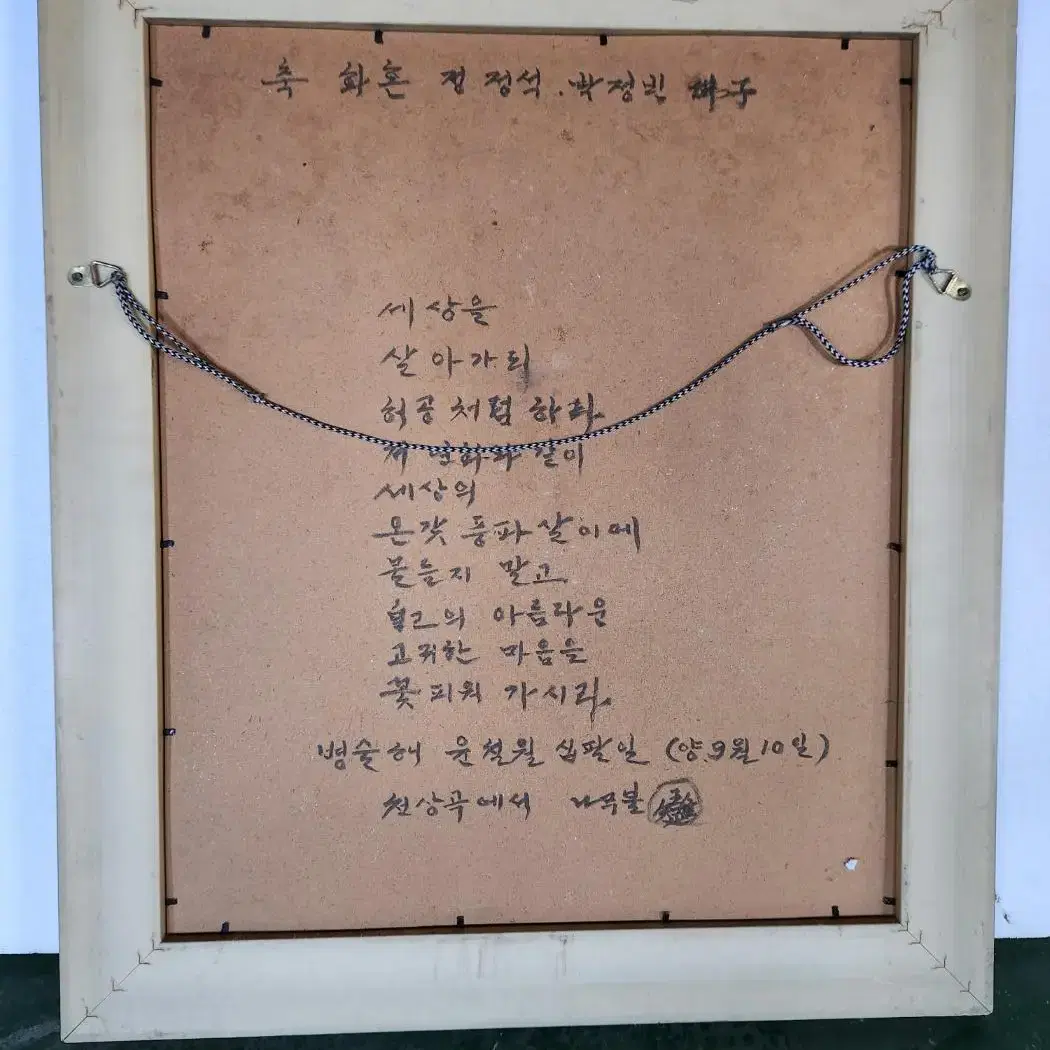 축 화혼 정정석. 박정빈 子
세상을
살아가되
허공처럼 하라
저 연화와 같이
세상의
온갖 풍파살이에
물들지 말고
의 아름다운
고귀한 마음을
꽃피워 가시라.
병술해 윤칠월 십팔일 (양.9월10일)
천상곡에서 나무불